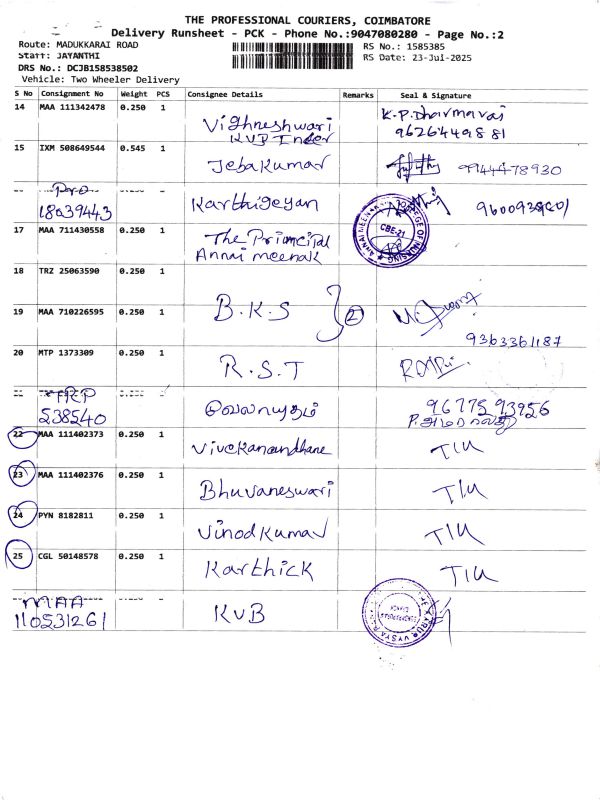 THE PROFESSIONAL COURIERS, COIMBATORE
Delivery Runsheet - PCK - Phone No.:9047080280 - Page No.:2
Route: MADUKKARAI ROAD
Staff: JAYANTHI
RS No.: 1585385
DRS No.: DCJB158538502
RS Date: 23-Jul-2025
Vehicle: Two Wheeler Delivery
S No Consignment No Weight PCS Consignee Details Remarks Seal & Signature
14 MAA 111342478 0.250 1 Vighneshwari K.P.Dharmaraj
KVP Inder 9626449881
15 IXM 508649544 0.545 1 Jebakumar 9944478930
Pro
18039443 Karthigeyan
17 MAA 711430558 0.250 1 The Principal
Annai meenak
CBE-21
18 TRZ 25063590 0.250 1
B.K.S 2
19 MAA 710226595 0.250 1
9363361187
20 MTP 1373309 0.250 1 R.S.T
TRP
538540 வேலாயுதம் 96775 93956
P.அமராவதி
22 MAA 111402373 0.250 1 Vivekanandhane T/U
23 MAA 111402376 0.250 1 Bhuvaneswari T/U
24 PYN 8182811 0.250 1 Vinodkumar T/U
25 CGL 50148578 0.250 1 Karthick T/U
MAA
110531261 KVB